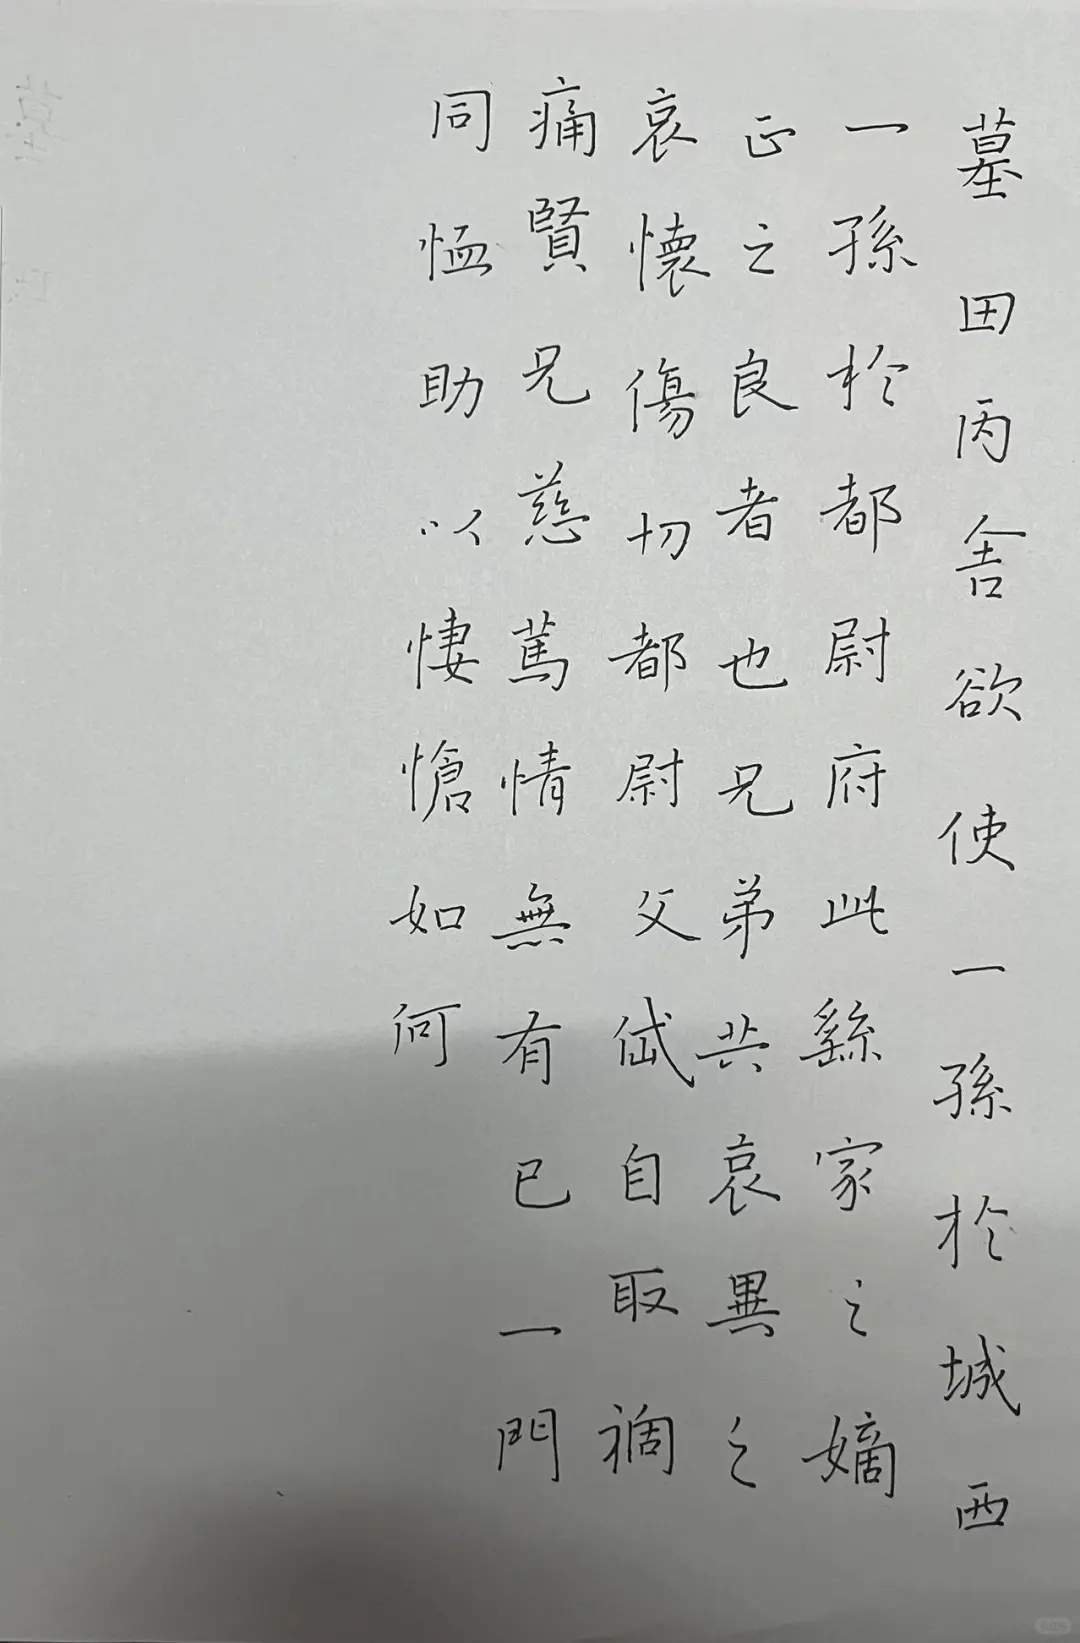 墓田丙舍欲使一孫於城西
一孫於都尉府此繇家之嫡
正之良者也兄弟共哀異之
哀懷傷切都尉文岱自取禍
痛賢兄慈篤情無有已一門
同恤助以悽愴如何